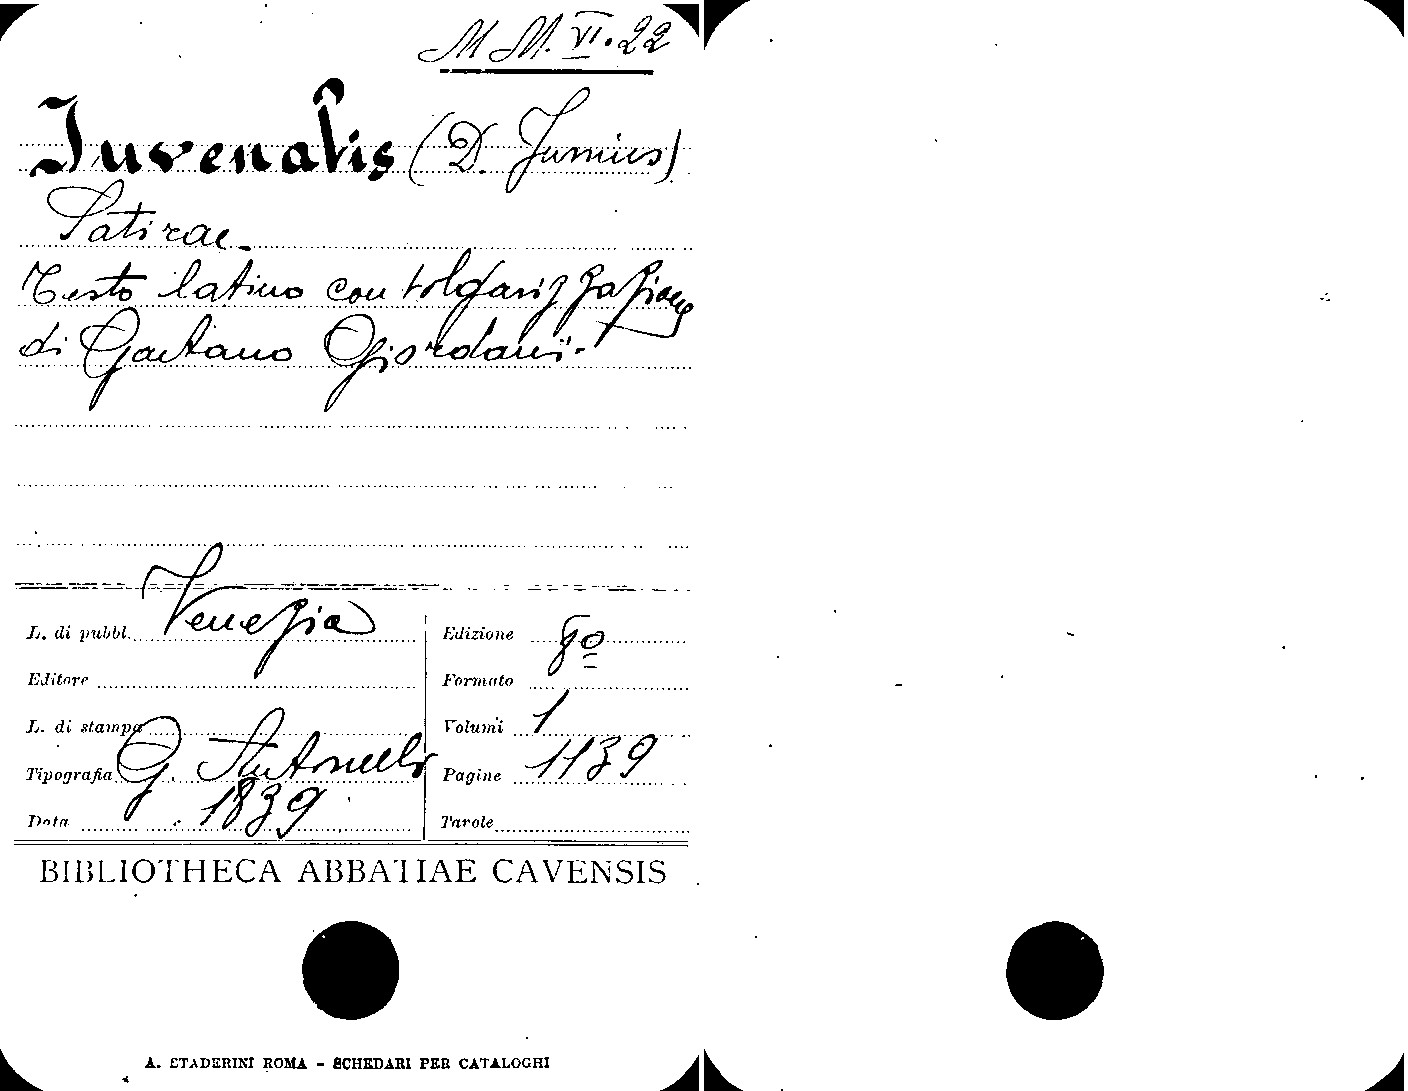 M M. VI. 22
Juvenalis (D. Junius)
Satirae.
Testo latino con volgarizzazione
di Gaetano Giordani.
L. di pubbl. Venezia
Editore
L. di stampa
Tipografia G. Antonelli
Data 1839
Edizione
Formato 8º
Volumi 1
Pagine 1139
Tavole
BIBLIOTHECA ABBATIAE CAVENSIS
A. STADERINI ROMA - SCHEDARI PER CATALOGHI